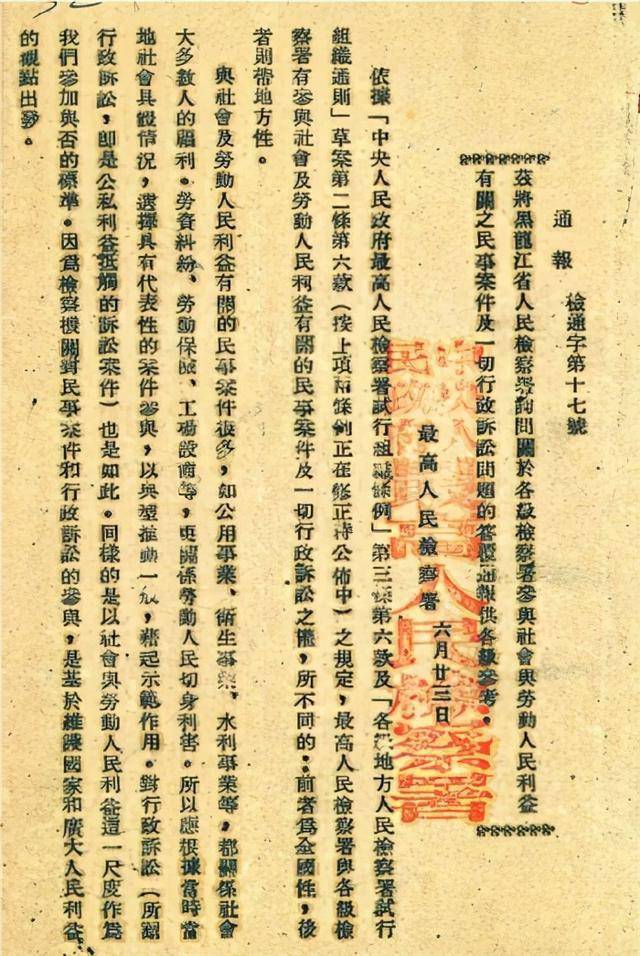 通報
檢通字第十七號
茲將黑龍江省人民檢察署詢問關於各級檢察署參與社會與勞動人民利益
有關之民事案件及一切行政訴訟問題的答覆通報供各級參考。
最高人民檢察署 六月廿三日
依據「中央人民政府最高人民檢察署試行組織條例」第三條第六款及「各級地方人民檢察署試行
組織通則」草案第二條第六款（按上項兩條例正在修正待公佈中）之規定，最高人民檢察署與各級檢
察署有參與社會及勞動人民利益有關的民事案件及一切行政訴訟之權，所不同的：前者為全國性，後
者則帶地方性。
與社會及勞動人民利益有關的民事案件很多，如公用事業、衛生事業、水利事業等，都關係社會
大多數人的福利。勞資糾紛、勞動保險、工礦設備等，更關係勞動人民切身利害。所以應根據當時當
地社會具體情況，選擇具有代表性的案件參與，以典型推動一般，藉起示範作用。對行政訴訟（所謂
行政訴訟，即是公私利益抵觸的訴訟案件）也是如此。同樣的是以社會與勞動人民利益這一尺度作為
我們參加與否的標準。因為檢察機關對民事案件和行政訴訟的參與，是基於維護國家和廣大人民利益
的觀點出發。
中央人民政府最高人民檢察署